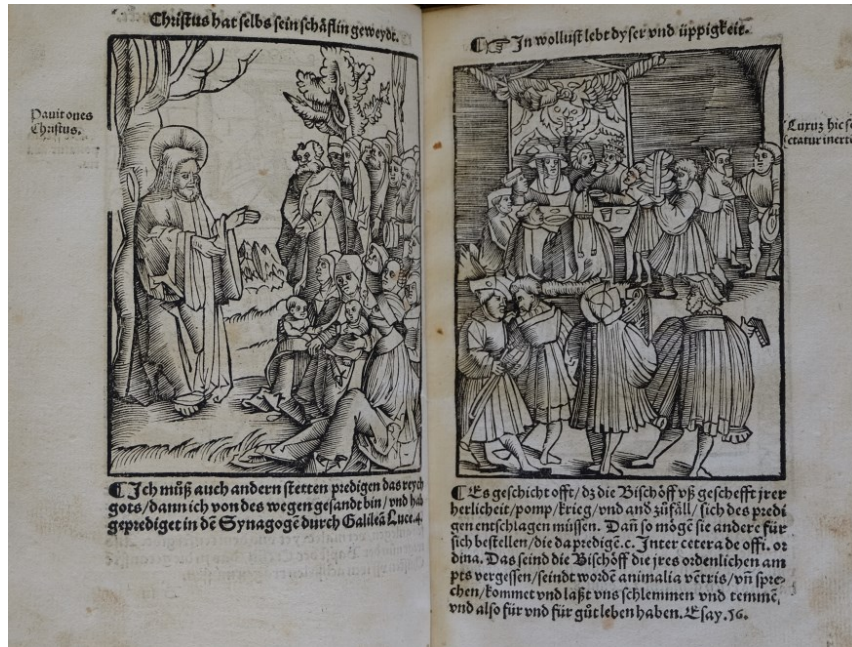 Christus hat selbs sein schäflin geweydt.
Pavit oues
Christus.
¶ Ich můß auch andern stetten predigen das reych
gots/dann ich von des wegen gesandt bin/vnd hab
geprediget in dē Synagogē durch Galileā Luce.4.
¶ ☞ In wollust lebt dyser vnd üppigkeit.
Luxuz hic se
ctatur inert
¶ Es geschicht offt/dz die Bischöff vß geschefft jrer
herlicheit/pomp/krieg/vnd andˀ zůfäll/sich des predi
gen entschlagen müssen. Dañ so mögē sie andere für
sich bestellen/die da predigē.c. Inter cetera de offi. or
dina. Das seind die Bischöff die jres ordenlichen am
pts vergessen/seindt wordē animalia vētris/vñ spre-
chen/kommet vnd laßt vns schlemmen vnd temmē,
vnd also für vnd für gůt leben haben. Esay.56.